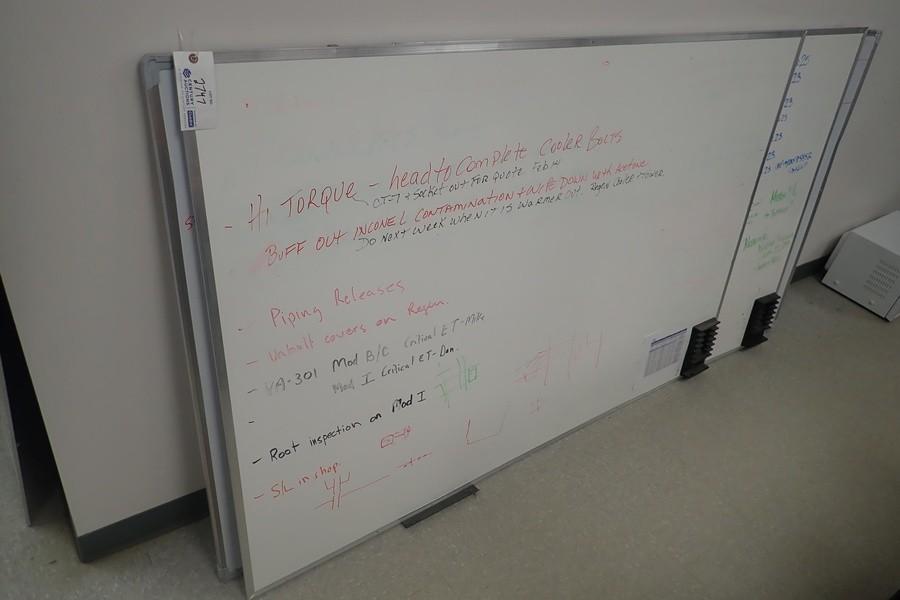 LOT NO.
2747
CENTURY
AUCTIONS
- Hi TORQUE - head to complete Cooler BOLTS
CT-1 + Socket out FOR Quote Feb 14
BUFF OUT INCONEL CONTAMINATION + WIPE DOWN with Acetone
DO Next week when it is warmer OUT. Regen Boiler Tower
- Piping Releases
- Unbolt covers on Regen.
- VA-301 Mod B/C Critical ET-Mike
Mod I Critical ET-Don.
-
- Root inspection on Mod I
- S/L in shop
23
23
23
23
23